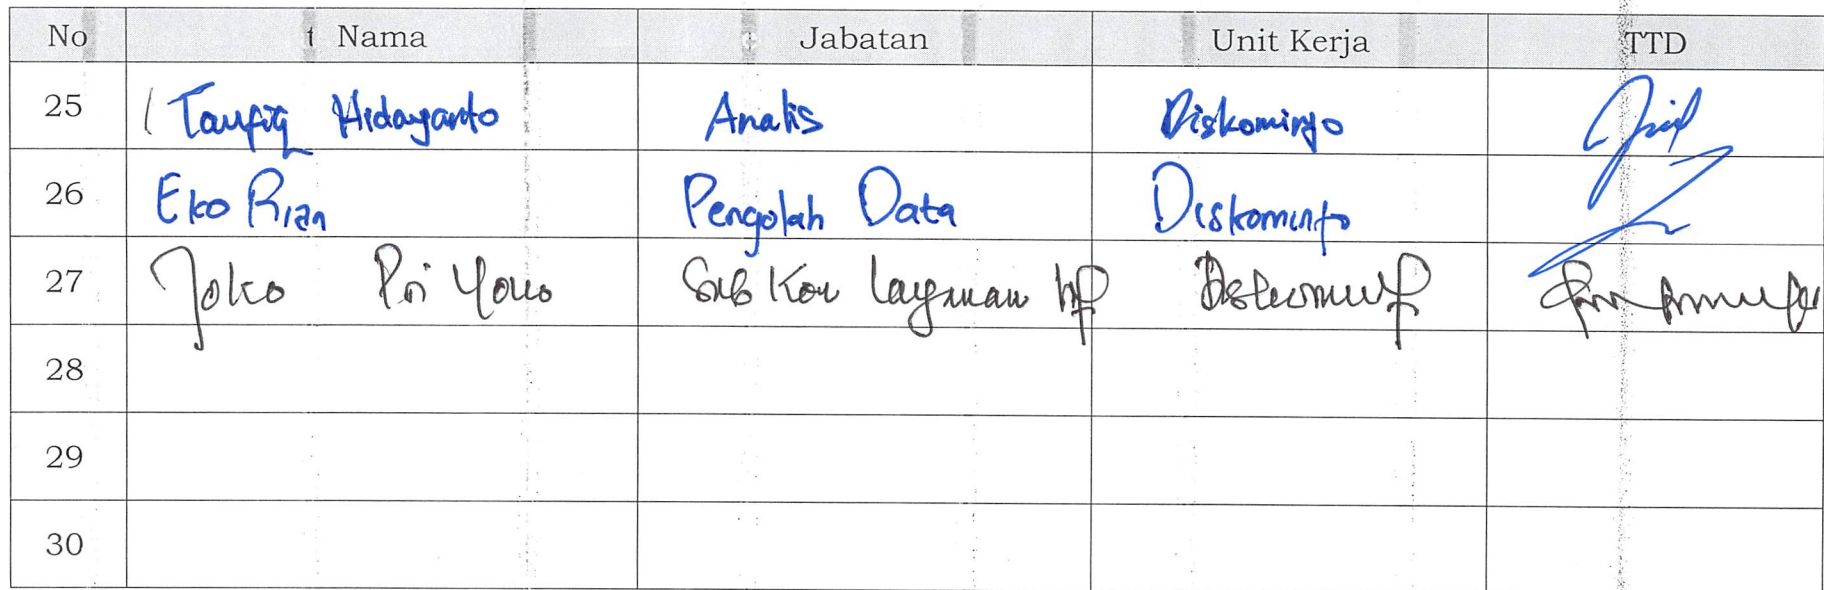 No Nama Jabatan Unit Kerja TTD
25 Taufiq Hidayanto Analis Diskominfo
26 Eko Rian Pengolah Data Diskominfo
27 Joko Priyono Sub Kor Layanan Diskominf
28
29
30